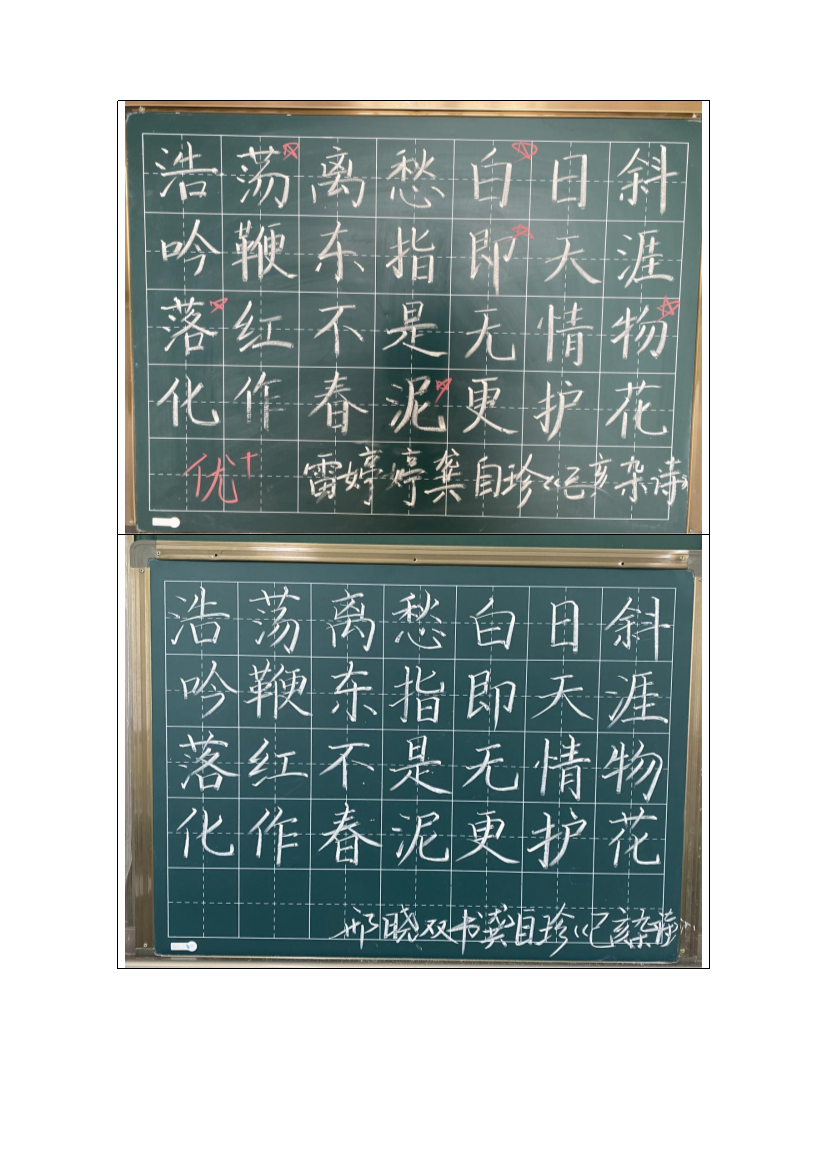 浩荡离愁白日斜
吟鞭东指即天涯
落红不是无情物
化作春泥更护花
优+ 雷婷婷龚自珍《己亥杂诗》
浩荡离愁白日斜
吟鞭东指即天涯
落红不是无情物
化作春泥更护花
邢晓双书龚自珍《己亥杂诗》